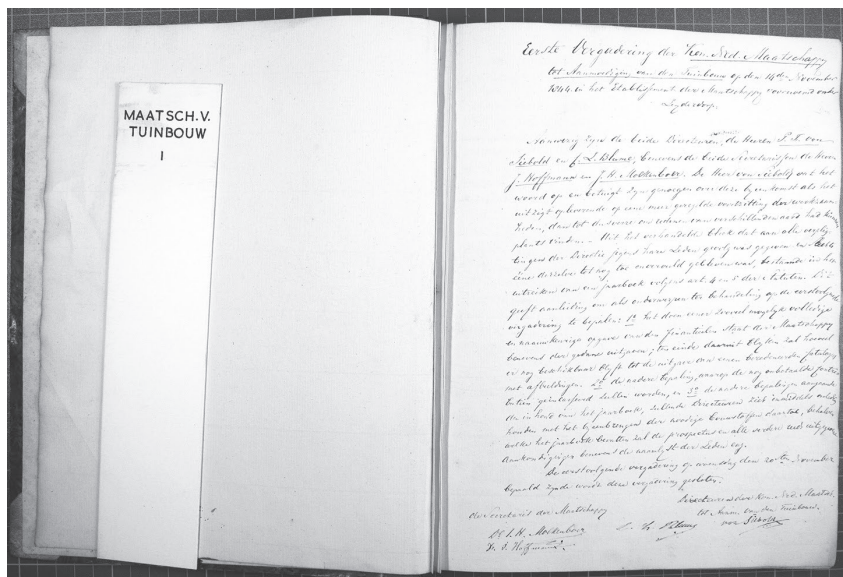 MAATSCH.V.
TUINBOUW
I
Eerste Vergadering der Kon. Ned. Maatschappy
tot Aanmoediging van den Tuinbouw op den 14den November
1844 in het Etablissement der Maatschappy voornoemd onder
Leyderdorp.
Aanwezig zyn de beide Directeuren, de Heeren P. F. von
Siebold en C. L. Blume, benevens de beide Secretarissen de Heeren
J. Hoffmann en J. H. Molkenboer. De Heer von Siebold vat het
woord op en betuigt zyn genoegen over deze byeenkomst als het
uitzigt opleverende op eene meer geregelde voortzetting der werkzaam-
heden, dan tot dusverre om redenen van verschillenden aard had kunnen
plaats vinden. - Uit het verhandelde bleek dat aan alle verplig-
tingen der Directie jegens hare Leden gevolg was gegeven en slechts
eene derzelve tot nog toe onvervuld gebleven was, bestaande in het
uitreiken van een jaarboek volgens art. 4 en 5 der Statuten. Dit
geeft aanleiding om als onderwerpen ter behandeling op de eerstvolgende
vergadering te bepalen: 1o het doen eener zooveel mogelyk volledige
en naauwkeurige opgave van den financieelen Staat der Maatschappy
benevens der gedane uitgaven; ten einde daaruit blyken zal hoeveel
er nog beschikbaar blyft tot de uitgave van eenen beredeneerden Catalogus
met afbeeldingen. 2o de nadere bepaling, waarop de nog onbetaalde
zullen worden, en 3o de nadere bepalingen aangaande
den inhoud van het jaarboek, zullende Directeuren zich inmiddels
houden met het byeenbrengen der noodige bouwstoffen daartoe,
welke het jaarboek bevatten zal de prospectus en alle verdere reeds uitgegevene
Aankondigingen benevens de naamlyst der Leden enz.
De eerstvolgende vergadering op woensdag den 20sten November
bepaald zynde wordt deze vergadering gesloten.
Directeuren der Kon. Ned. Maatsch.
tot Aanm. van den Tuinbouw.
von Siebold
C. L. Blume
de Secretaris der Maatschappy
Dr J. H. Molkenboer
J. Hoffmann